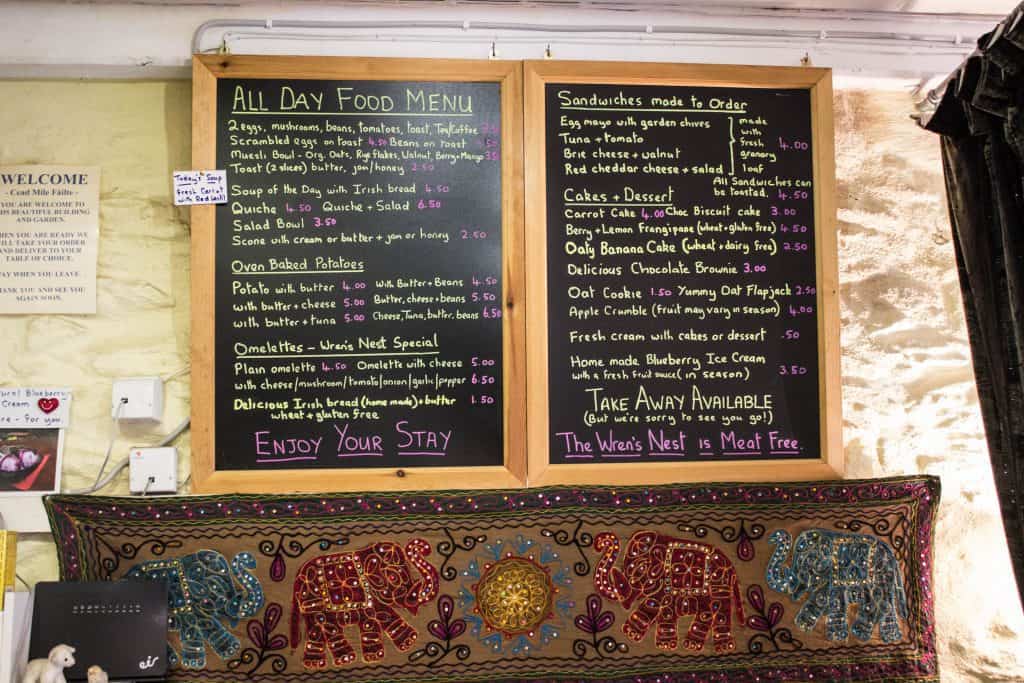 WELCOME
- Cead Mile Fáilte -
YOU ARE WELCOME TO
BEAUTIFUL BUILDING
AND GARDEN.
WHEN YOU ARE READY WE
WILL TAKE YOUR ORDER
AND DELIVER TO YOUR
TABLE OF CHOICE.
PAY WHEN YOU LEAVE
THANK YOU AND SEE YOU
AGAIN SOON.
Today's Soup
Fresh Carrot
with Red Lentil
ALL DAY FOOD MENU
2 eggs, mushrooms, beans, tomatoes, toast, Tea/Coffee
Scrambled eggs on toast 4.50 Beans on toast
Muesli Bowl - Org. Oats, Rye flakes, Walnut, Berry + Mango 3.5
Toast (2 slices) butter, jam/honey 2.50
Soup of the Day with Irish bread 4.50
Quiche 4.50 Quiche + Salad 6.50
Salad Bowl 3.50
Scone with cream or butter + jam or honey 2.50
Oven Baked Potatoes
Potato with butter 4.00 with Butter + Beans 4.50
with butter + cheese 5.00 Butter, cheese + beans 5.50
with butter + tuna 5.00 Cheese, Tuna, butter, beans 6.50
Omelettes - Wren's Nest Special
Plain omelette 4.50 Omelette with cheese 5.00
with cheese/mushroom/tomato/onion/garlic/pepper 6.50
Delicious Irish bread (home made) + butter 1.50
wheat + gluten free
ENJOY YOUR STAY
Sandwiches made to Order
Egg mayo with garden chives
Tuna + tomato
Brie cheese + walnut
Red cheddar cheese + salad
made
with
fresh
granary
loaf
4.00
All Sandwiches can
be toasted. 4.50
Cakes + Dessert
Carrot Cake 4.00 Choc Biscuit cake 3.00
Berry + Lemon Frangipane (wheat + gluten free) 4.50
Oaty Banana Cake (wheat + dairy free) 2.50
Delicious Chocolate Brownie 3.00
Oat Cookie 1.50 Yummy Oat Flapjack 2.50
Apple Crumble (fruit may vary in season) 4.00
Fresh cream with cakes or dessert .50
Home made Blueberry Ice Cream
with a fresh fruit sauce (in season) 3.50
TAKE AWAY AVAILABLE
(But we're sorry to see you go!)
THE WREN'S NEST IS MEAT FREE.
Blueberry
Cream
for you.
eir